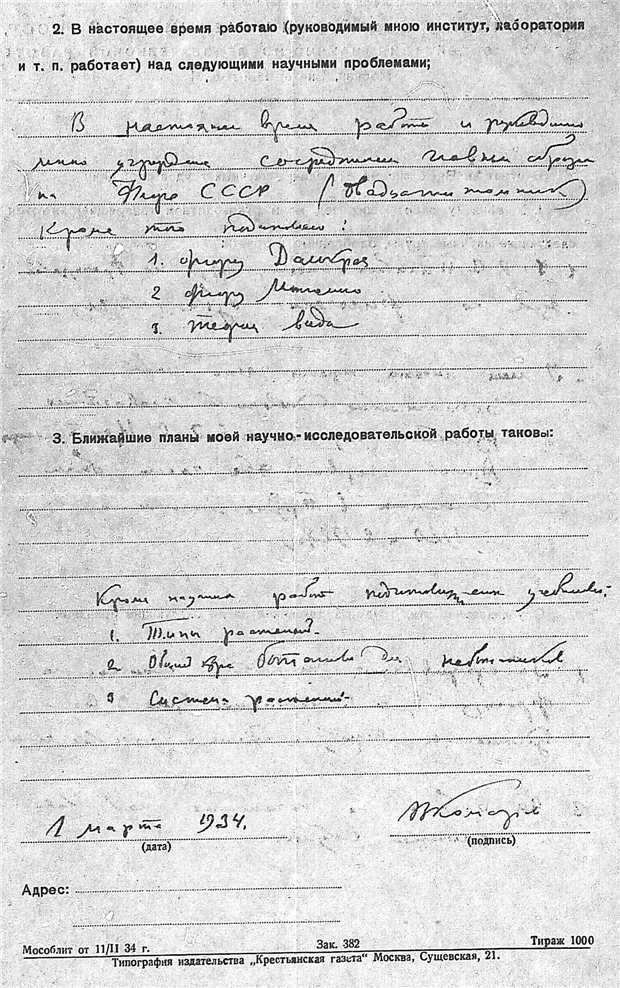 2. В настоящее время работаю (руководимый мною институт, лаборатория
и т. п. работает) над следующими научными проблемами;
В настоящее время работа и руководимого
мною учреждения сосредоточена главным образом
на Флоре СССР (двадцатитомник)
Кроме того подготовляю:
1. флору Далькрая
2 флору Монголии
3. теория вида
3. Ближайшие планы моей научно-исследовательской работы таковы:
Кроме научных работ подготовляющих учебники:
1. Типы растений.
2. Общий курс ботаники для неботаников
3 Система растений.
1 марта 1934.
ВКомаров
(дата)
(подпись)
Адрес:
Мособлит от 11/II 34 г.
Зак. 382
Тираж 1000
Типография издательства „Крестьянская газета“ Москва, Сущевская, 21.